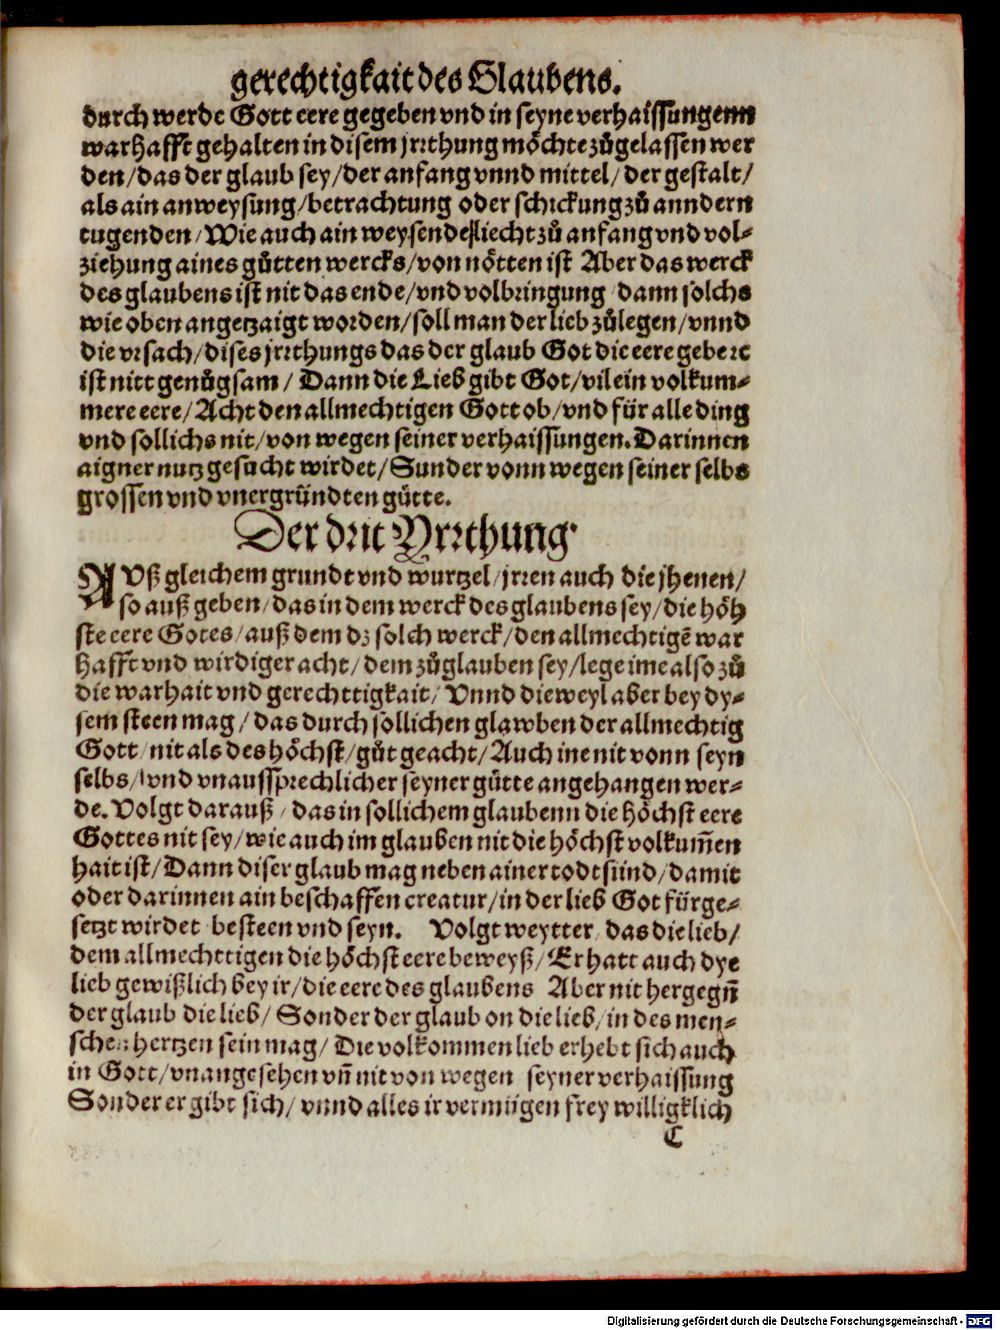 gerechtigkait des Glaubens.
durch werde Gott eere gegeben vnd in seyne verhaissungenn
warhafft gehalten in disem jrrthung möchte zůgelassen wer
den/das der glaub sey/der anfang vnnd mittel/der gestalt/
als ain anweysung/betrachtung oder schickung zů anndern
tugenden/Wie auch ain weysendes liecht zů anfang vnd vol⸗
ziehung aines gůtten wercks/von nötten ist Aber das werck
des glaubens ist nit das ende/vnd volbringung dann solchs
wie oben angetzaigt worden/soll man der lieb zůlegen/vnnd
die vrsach/dises jrrthungs das der glaub Got die eere gebere
ist nitt genůgsam/ Dann die Lieb gibt Got/vil ein volkum⸗
mere eere/Acht den allmechtigen Gott ob/vnd für alle ding
vnd sollichs nit/von wegen seiner verhaissungen. Darinnen
aigner nutz gesucht wirdet/Sunder vonn wegen seiner selbs
grossen vnd vnergründten gůtte.
Der drit Yrrthung
AVß gleichem grundt vnd wurtzel/jrren auch die jhenen/
so auß geben/das in dem werck des glaubens sey/die höh
ste eere Gotes/auß dem dz solch werck/den allmechtigē war
hafft vnd wirdiger acht/dem zůglauben sey/lege ime also zů
die warhait vnd gerechttigkait/Vnnd dieweyl aber bey dy⸗
sem steen mag/das durch sollichen glawben der allmechtig
Gott/nit als des höchst/gůt geacht/Auch ine nit vonn seyn
selbs/vnd vnaussprechlicher seyner gůtte angehangen wer⸗
de. Volgt darauß/das in sollichem glaubenn die höchst eere
Gottes nit sey/wie auch im glauben nit die höchst volkum̄en
hait ist/Dann diser glaub mag neben ainer todtsünd/damit
oder darinnen ain beschaffen creatur/in der lieb Got fürge⸗
setzt wirdet besteen vnd seyn. Volgt weytter das die lieb/
dem allmechttigen die höchst eere beweyß/Er hatt auch dye
lieb gewißlich bey ir/die eere des glaubens Aber nit hergegn̄
der glaub die lieb/Sonder der glaub on die lieb/in des men⸗
schen hertzen sein mag/Die volkommen lieb erhebt sich auch
in Gott/vnangesehen vn̄ nit von wegen seyner verhaissung
Sonder er gibt sich/vnnd alles ir vermügen frey willigklich
C
Digitalisierung gefördert durch die Deutsche Forschungsgemeinschaft - DFG